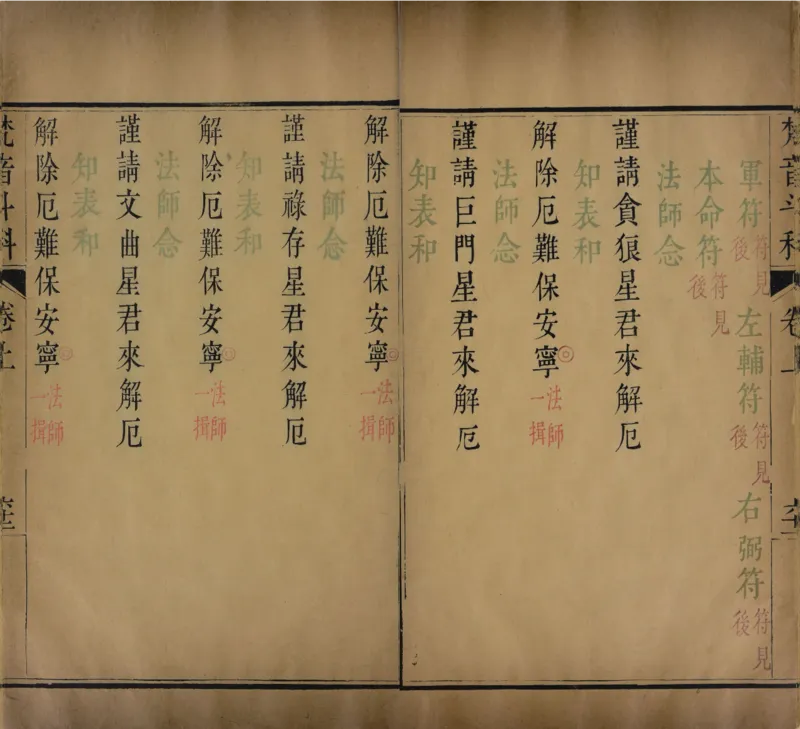 梵音斗科 卷上
軍符符見後 左輔符符見後 右弼符符見後
本命符符見後
法師念
謹請貪狼星君來解厄
知表和
解除厄難保安寧◎法師一揖
法師念
謹請巨門星君來解厄
知表和
解除厄難保安寧◎法師一揖
法師念
謹請祿存星君來解厄
知表和
解除厄難保安寧◎法師一揖
法師念
謹請文曲星君來解厄
知表和
解除厄難保安寧◎法師一揖
梵音斗科 卷上